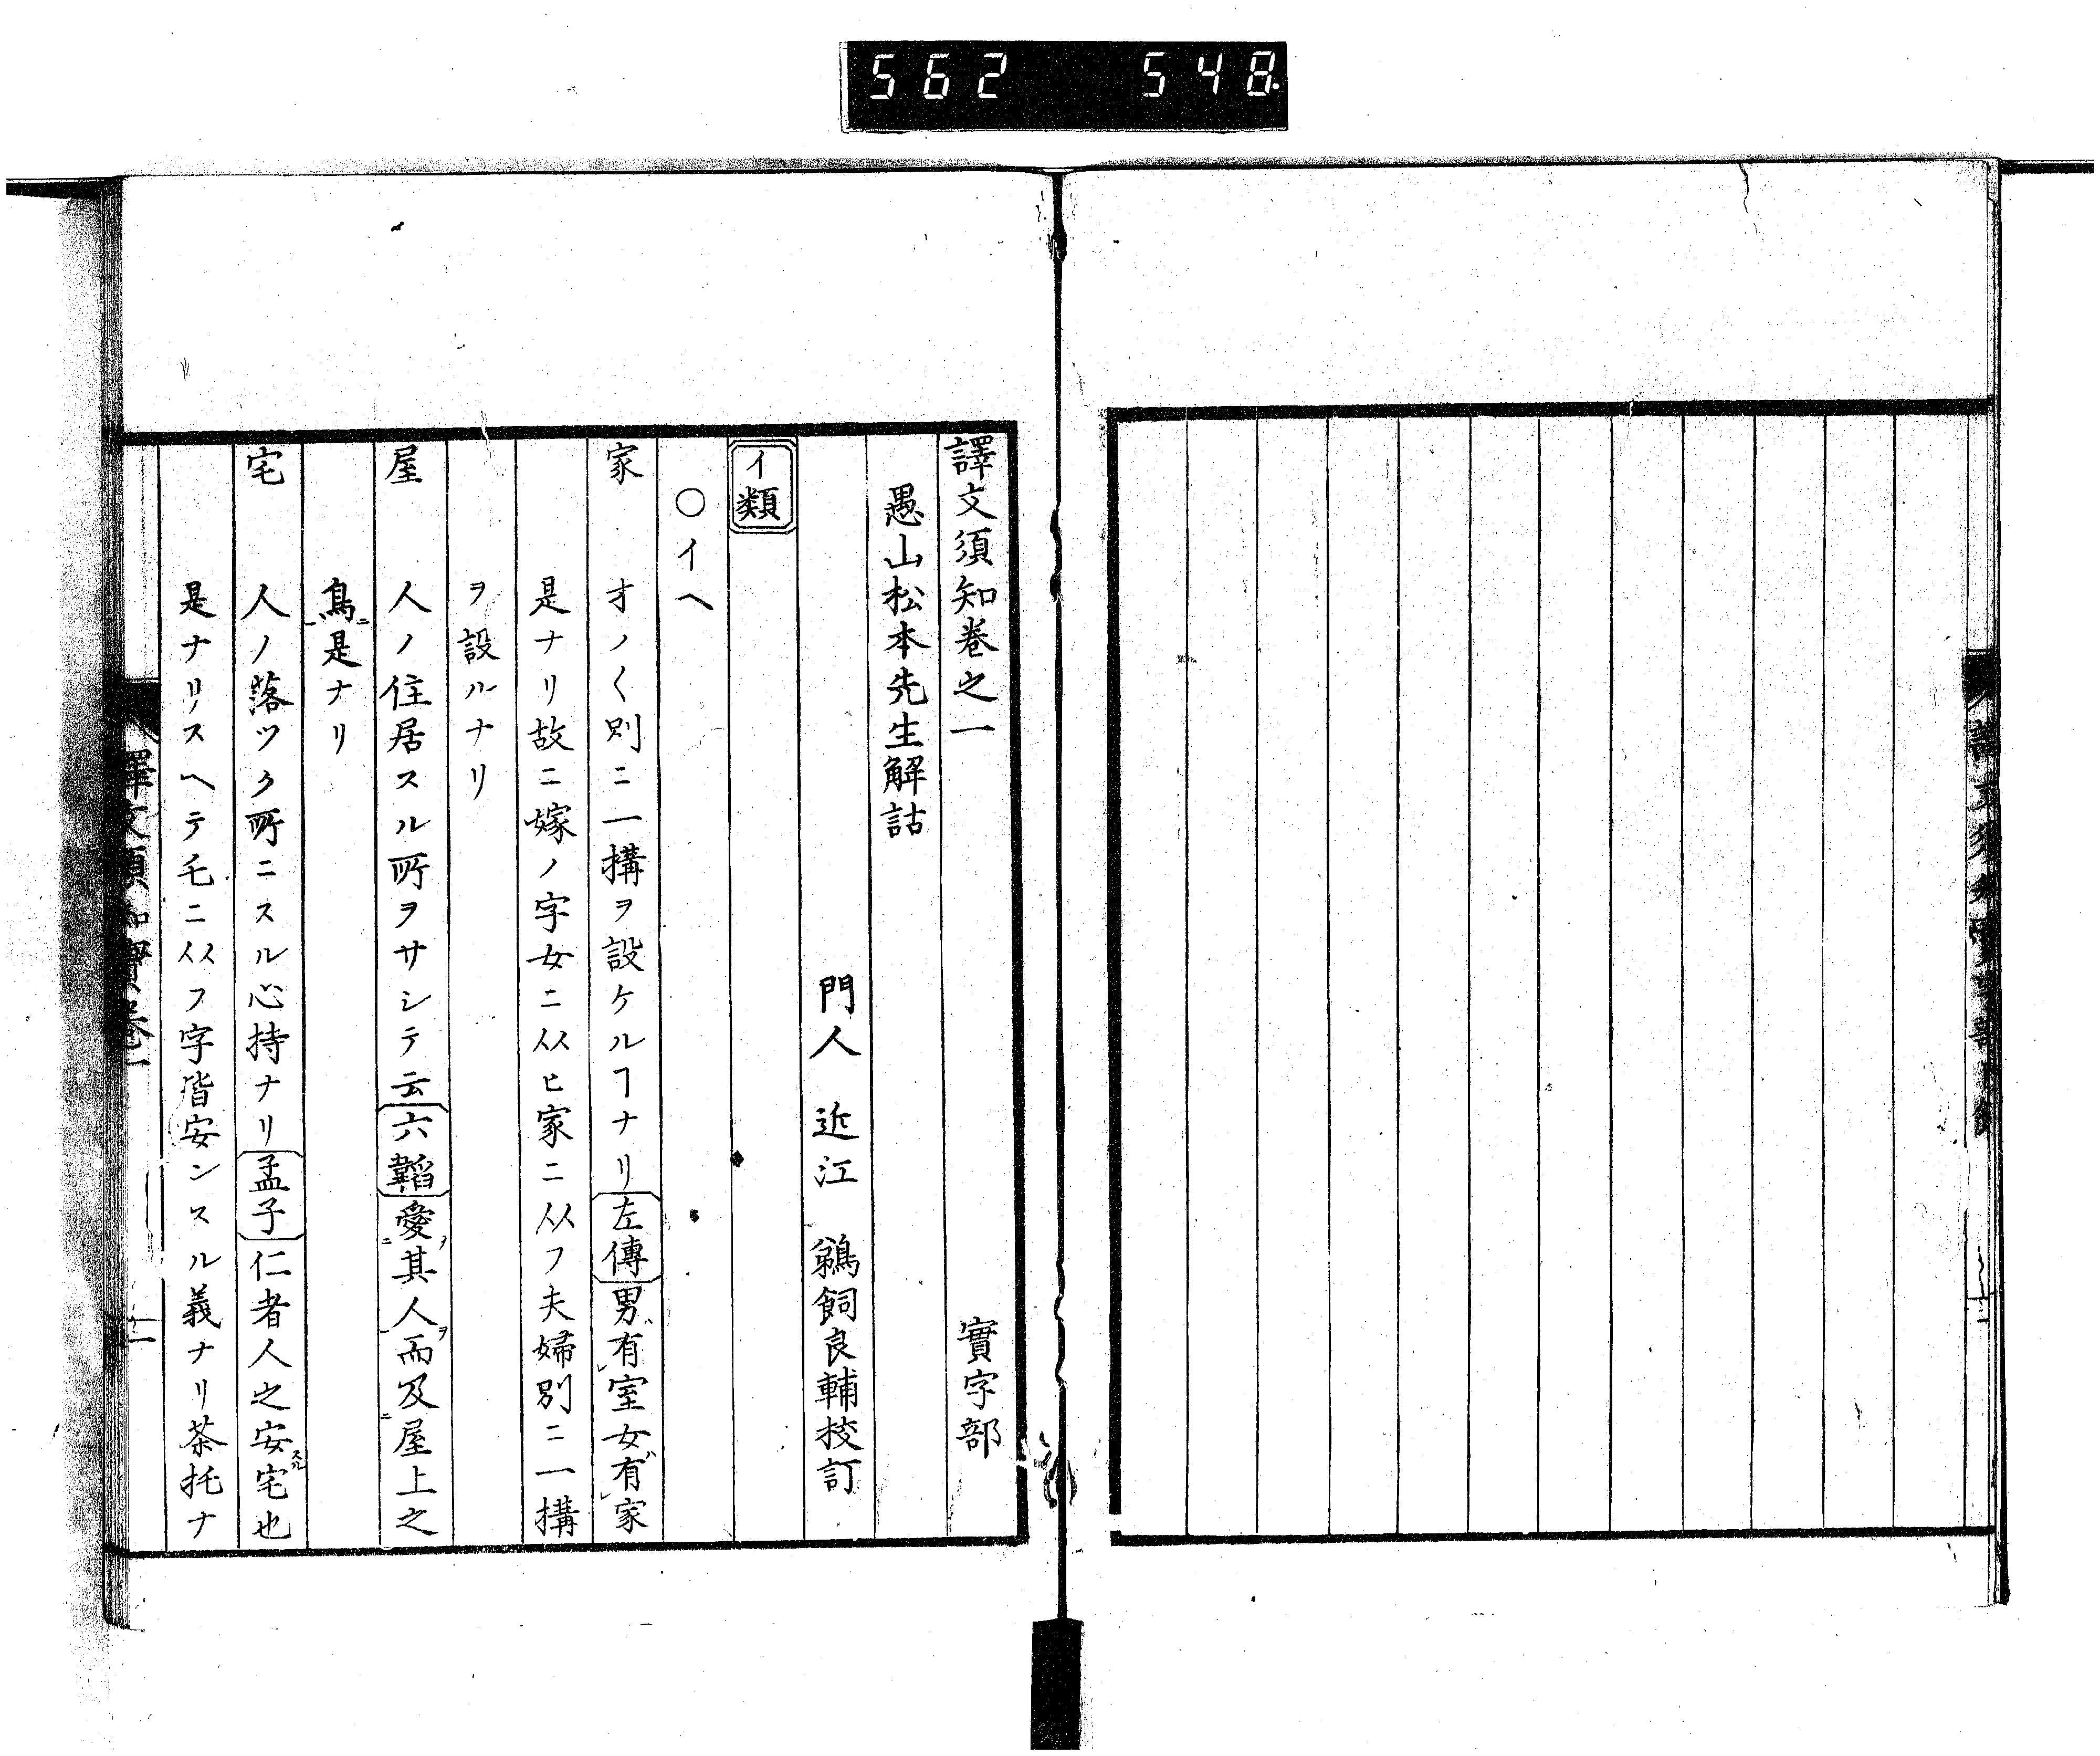 562 548
譯文須知卷之一 實字部
愚山松本先生解詁
門人 近江 鵜飼良輔挍訂
イ類
○イヘ
家 オノ〱別ニ一搆ヲ設ケルヿナリ左傳男有室女有家
是ナリ故ニ嫁ノ字女ニ从ヒ家ニ从フ夫婦別ニ一搆
ヲ設ルナリ
屋 人ノ住居スル所ヲサシテ云六韜愛其人而及屋上之
烏是ナリ
宅 人ノ落ツク所ニスル心持ナリ孟子仁者人之安宅也
是ナリスヘテ乇ニ从フ字皆安ンスル義ナリ茶托ナ
譯文須知實卷一